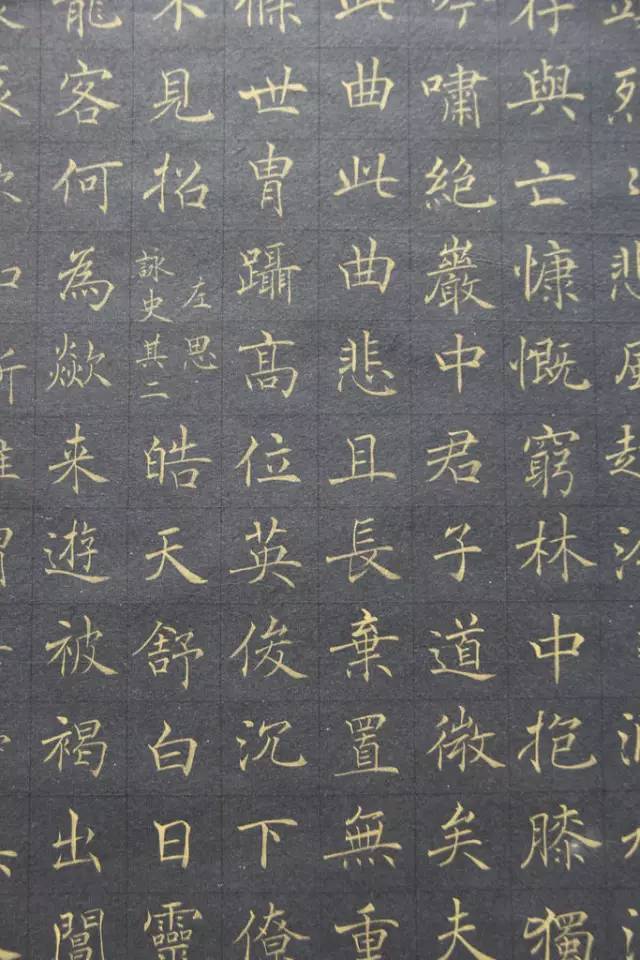 悲風起
存與亡慷慨窮林中抱膝獨
吟嘯絕巖中君子道微矣夫
此曲此曲悲且長棄置無重
條世胄躡高位英俊沉下僚
不見招
左思
詠史其二
皓天舒白日靈
龍客何為歘来遊被褐出閶